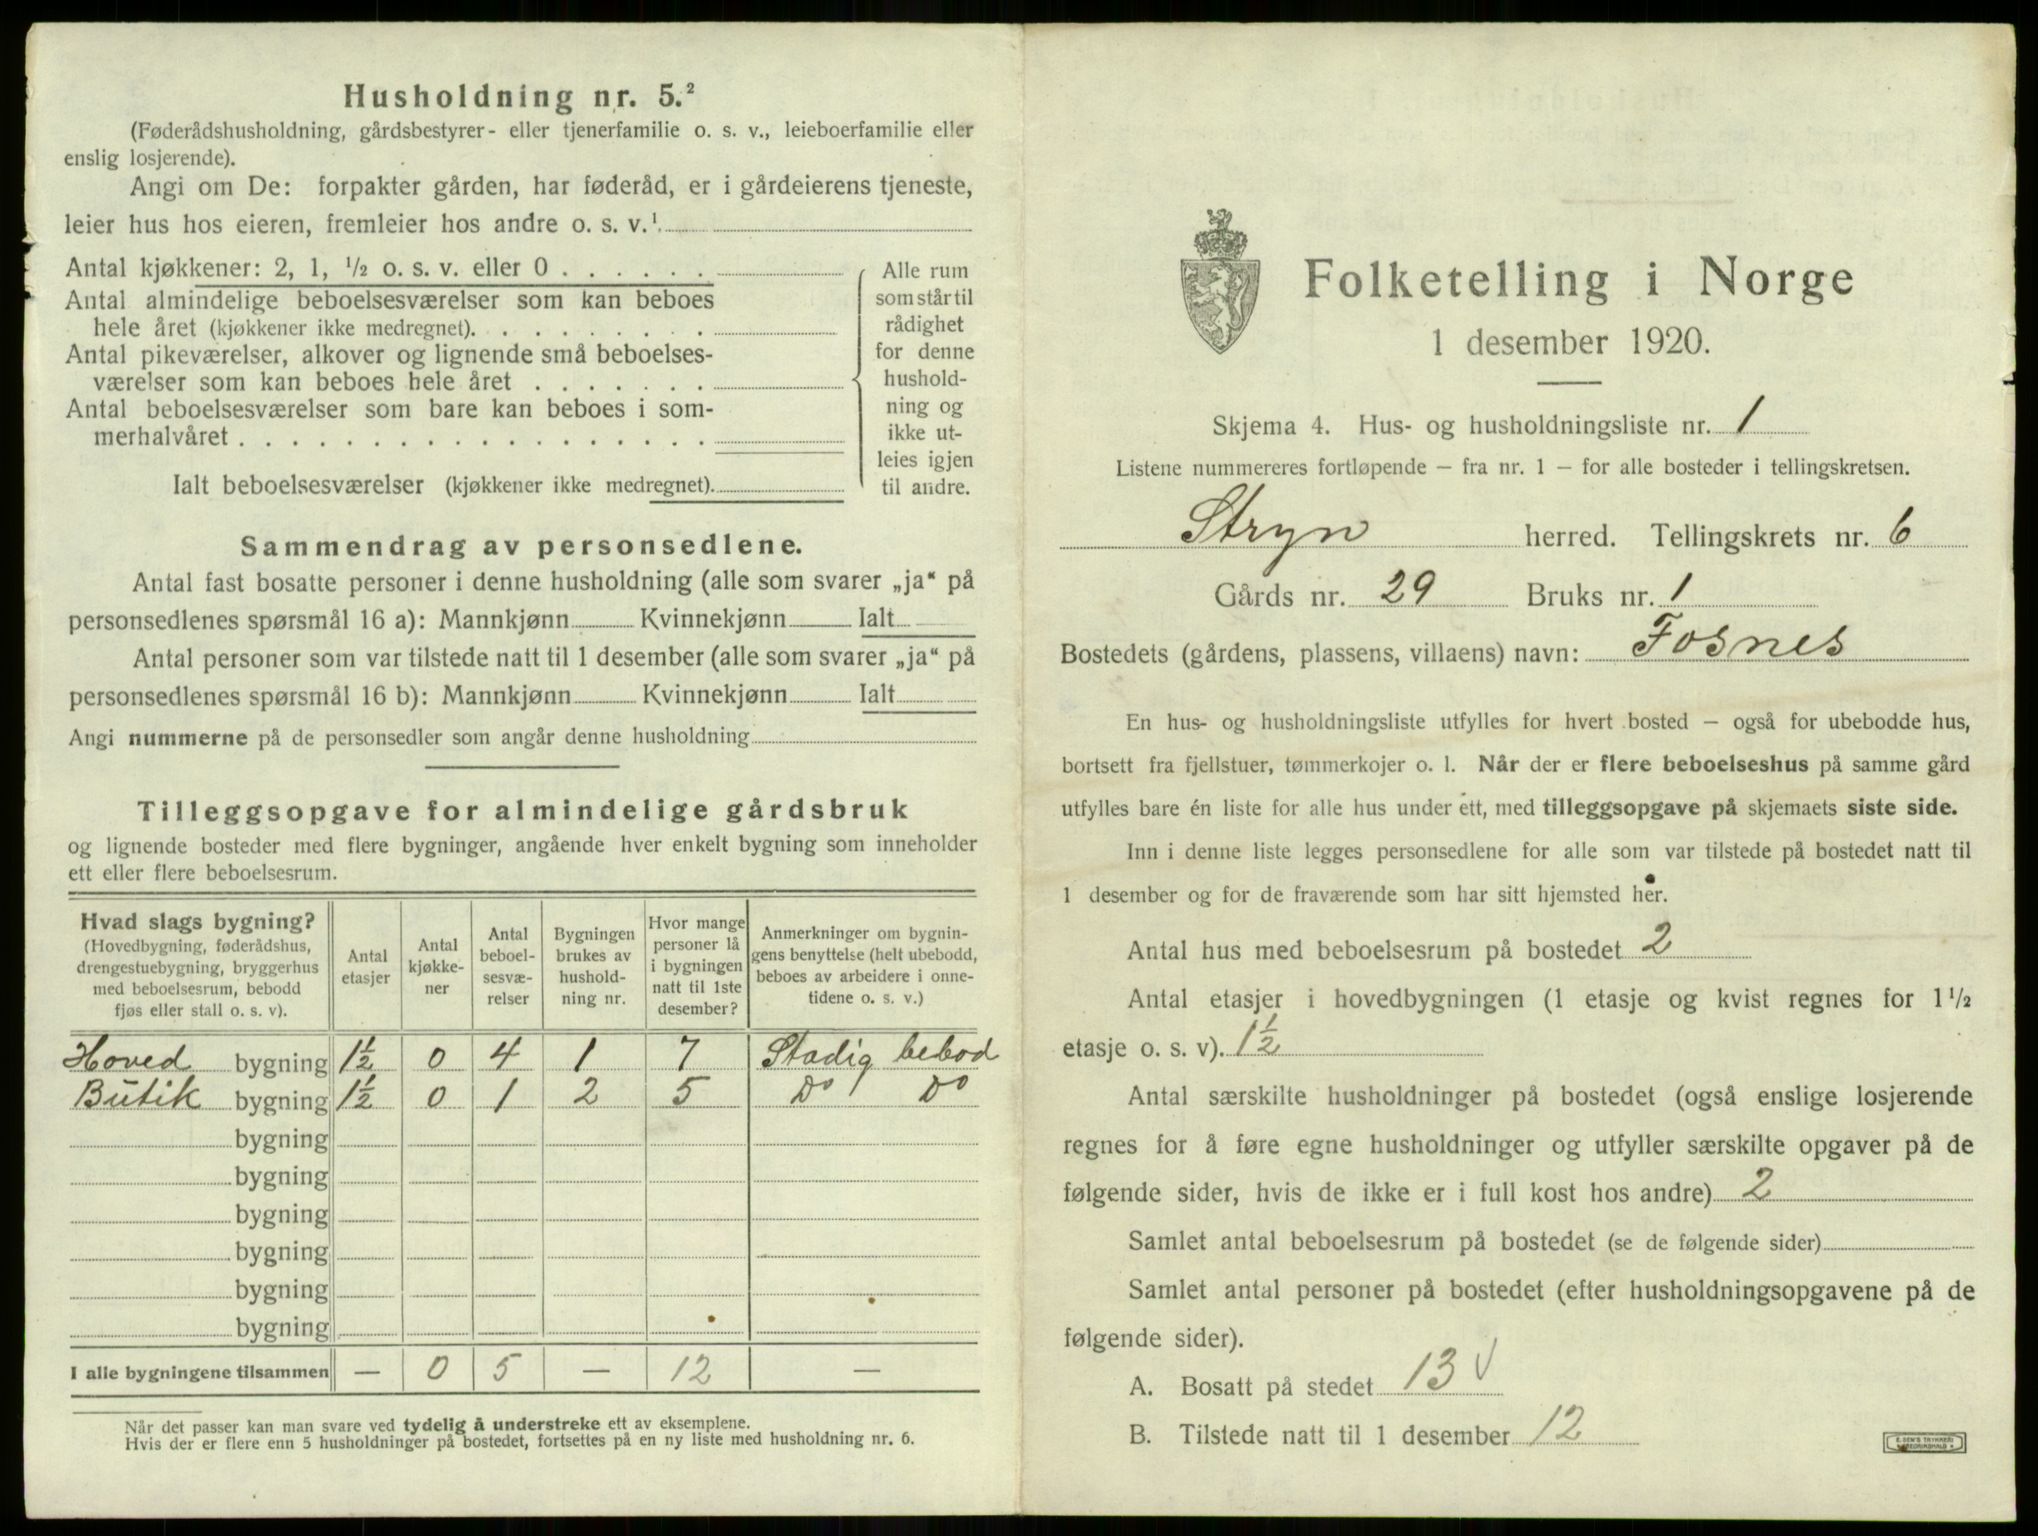 Husholdning nr. 5.²
(Føderådshusholdning, gårdsbestyrer- eller tjenerfamilie o. s. v., leieboerfamilie eller
enslig losjerende).
Angi om De: forpakter gården, har føderåd, er i gårdeierens tjeneste,
leier hus hos eieren, fremleier hos andre o. s. v.¹
Antal kjøkkener: 2, 1, ½ o. s. v. eller 0 . . . . . .
Antal almindelige beboelsesværelser som kan beboes
hele året (kjøkkener ikke medregnet). . . . . . . . .
Antal pikeværelser, alkover og lignende små beboelses-
værelser som kan beboes hele året . . . . . . .
Antal beboelsesværelser som bare kan beboes i som-
merhalvåret . . . . . . . . . . . . . . . . . .
Ialt beboelsesværelser (kjøkkener ikke medregnet).
Alle rum
som står til
rådighet
for denne
hushold-
ning og
ikke ut-
leies igjen
til andre.
Sammendrag av personsedlene.
Antal fast bosatte personer i denne husholdning (alle som svarer „ja“ på
personsedlenes spørsmål 16 a): Mannkjønn Kvinnekjønn Ialt
Antal personer som var tilstede natt til 1 desember (alle som svarer „ja“ på
personsedlenes spørsmål 16 b): Mannkjønn Kvinnekjønn Ialt
Angi nummerne på de personsedler som angår denne husholdning
Tilleggsopgave for almindelige gårdsbruk
og lignende bosteder med flere bygninger, angående hver enkelt bygning som inneholder
ett eller flere beboelsesrum.
Hvad slags bygning?
(Hovedbygning, føderådshus,
drengestuebygning, bryggerhus
med beboelsesrum, bebodd
fjøs eller stall o. s. v).
Antal
etasjer
Antal
kjøkke-
ner
Antal
beboel-
sesvæ-
relser
Bygningen
brukes av
hushold-
ning nr.
Hvor mange
personer lå
i bygningen
natt til 1ste
desember?
Anmerkninger om bygnin-
gens benyttelse (helt ubebodd,
beboes av arbeidere i onne-
tidene o. s. v.)
Hoved bygning 1½ 0 4 1 7 Stadig bebod
Butik bygning 1½ 0 1 2 5 Do Do
bygning
bygning
bygning
bygning
bygning
bygning
I alle bygningene tilsammen — 0 5 — 12 —
Når det passer kan man svare ved tydelig å understreke ett av eksemplene.
Hvis der er flere enn 5 husholdninger på bostedet, fortsettes på en ny liste med husholdning nr. 6.
Folketelling i Norge
1 desember 1920.
Skjema 4. Hus- og husholdningsliste nr. 1
Listene nummereres fortløpende — fra nr. 1 — for alle bosteder i tellingskretsen.
Stryn herred. Tellingskrets nr. 6
Gårds nr. 29 Bruks nr. 1
Bostedets (gårdens, plassens, villaens) navn: Fosnes
En hus- og husholdningsliste utfylles for hvert bosted — også for ubebodde hus,
bortsett fra fjellstuer, tømmerkojer o. l. Når der er flere beboelseshus på samme gård
utfylles bare én liste for alle hus under ett, med tilleggsopgave på skjemaets siste side.
Inn i denne liste legges personsedlene for alle som var tilstede på bostedet natt til
1 desember og for de fraværende som har sitt hjemsted her.
Antal hus med beboelsesrum på bostedet 2
Antal etasjer i hovedbygningen (1 etasje og kvist regnes for 1½
etasje o. s. v). 1½
Antal særskilte husholdninger på bostedet (også enslige losjerende
regnes for å føre egne husholdninger og utfyller særskilte opgaver på de
følgende sider, hvis de ikke er i full kost hos andre) 2
Samlet antal beboelsesrum på bostedet (se de følgende sider)
Samlet antal personer på bostedet (efter husholdningsopgavene på de
følgende sider).
A. Bosatt på stedet 13 √
B. Tilstede natt til 1 desember 12